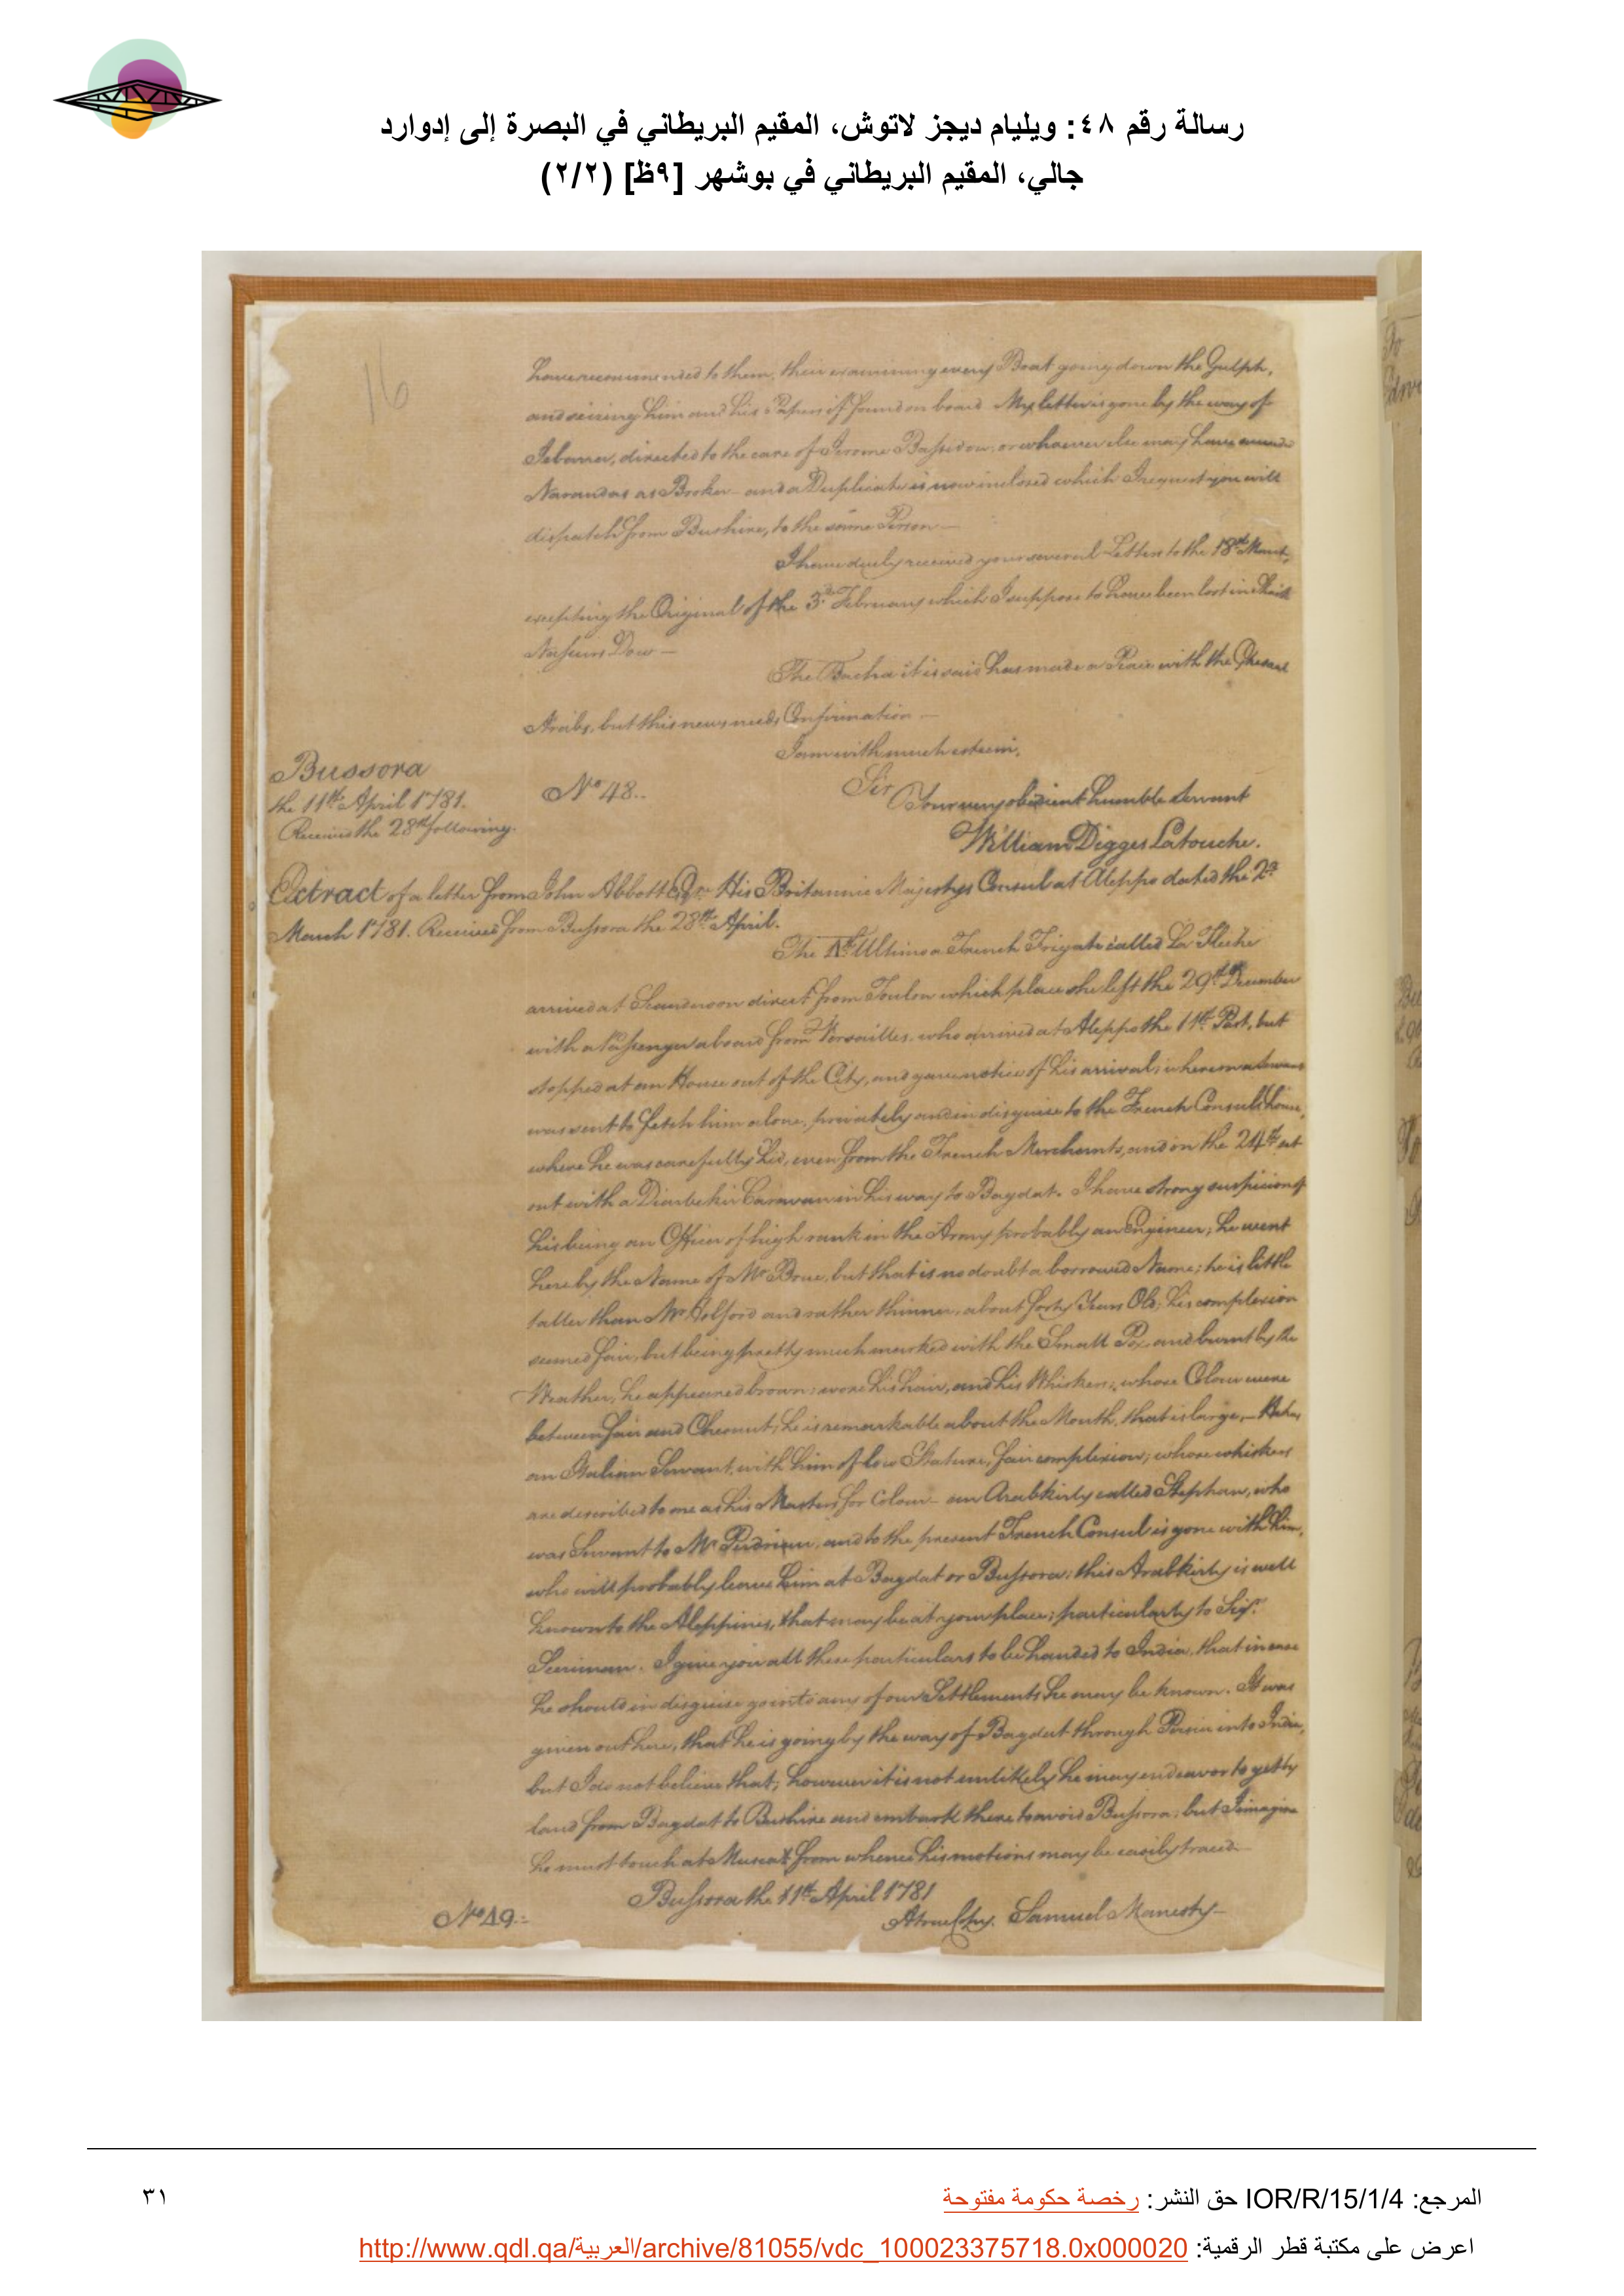 رسالة رقم ٤٨: ويليام ديجز لاتوش، المقيم البريطاني في البصرة إلى إدوارد
جالي، المقيم البريطاني في بوشهر [٩ظ] (٢/٢)
16
have recommended to them, their examining every Boat going down the Gulph,
and seizing him and his Papers if found on board. My letter is gone by the way of
directed to the care of or whoever else may have
Narandas as Broker - and a Duplicate is now inclosed which I request you will
dispatch from Bushire, to the same Person —
I have duly received your several Letters to the 18th
excepting the Original of the 3d. February which I suppose to have been lost in
Dow —
The Bacha it is said has made a Peace with the
Arabs, but this news needs Confirmation —
I am with much esteem,
Bussora
the 11th April 1781.
Received the 28th following.
No 48..
Sir
Your very obedient humble Servant
William Digges Latouche.
Extract of a letter from John Abbott Esqr. His Britannic Majestys Consul at Aleppo dated the 2d
March 1781. Received from Bussora the 28th April.
The Ultimo a French Frigate called La Fleche
arrived at Scanderoon direct from Toulon which place she left the 29th December
with a Passenger aboard from Versailles, who arrived at Aleppo the 11th Past, but
stopped at an House out of the City, and gave notice of his arrival;
was sent to fetch him alone, privately and in disguise to the French Consuls house,
where he was carefully hid, even from the French Merchants, and on the 24th set
out with a Diarbekir Caravan in his way to Bagdat. I have strong suspicions of
his being an Officer of high rank in the Army probably an Engineer; he went
here by the Name of Mr but that is no doubt a borrowed Name; he is little
taller than Mr and rather thinner, about forty Years Old, his complexion
seemed fair, but being pretty much marked with the Small Pox, and burnt by the
Weather, he appeared brown; wore his hair, and his Whiskers, whose Colour were
between fair and Chesnut; he is remarkable about the Mouth, that is large, —
an Italian Servant, with him of low Stature, fair complexion; whose whiskers
are described to me as his Masters for Colour — an Arabkirly called Stephan, who
was Servant to Mr and to the present French Consul is gone with him,
who will probably leave him at Bagdat or Bussora; this Arabkirly is well
known to the Aleppines, that may be at your place; particularly to Sigr.
I give you all these particulars to be handed to India, that in case
he should in disguise go into any of our Settlements he may be known. It was
given out here, that he is going by the way of Bagdat through Persia into India,
but I do not believe that; however it is not unlikely he may endeavor to get by
land from Bagdat to Bushire and embark there to avoid Bussora; but I imagine
he must touch at Muscat from whence his motions may be easily traced —
Bussora the 11th April 1781
No 49.
A true Copy. Samuel Manesty —
المرجع: IOR/R/15/1/4 حق النشر: رخصة حكومة مفتوحة
٣١
اعرض على مكتبة قطر الرقمية: http://www.qdl.qa/العربية/archive/81055/vdc_100023375718.0x000020